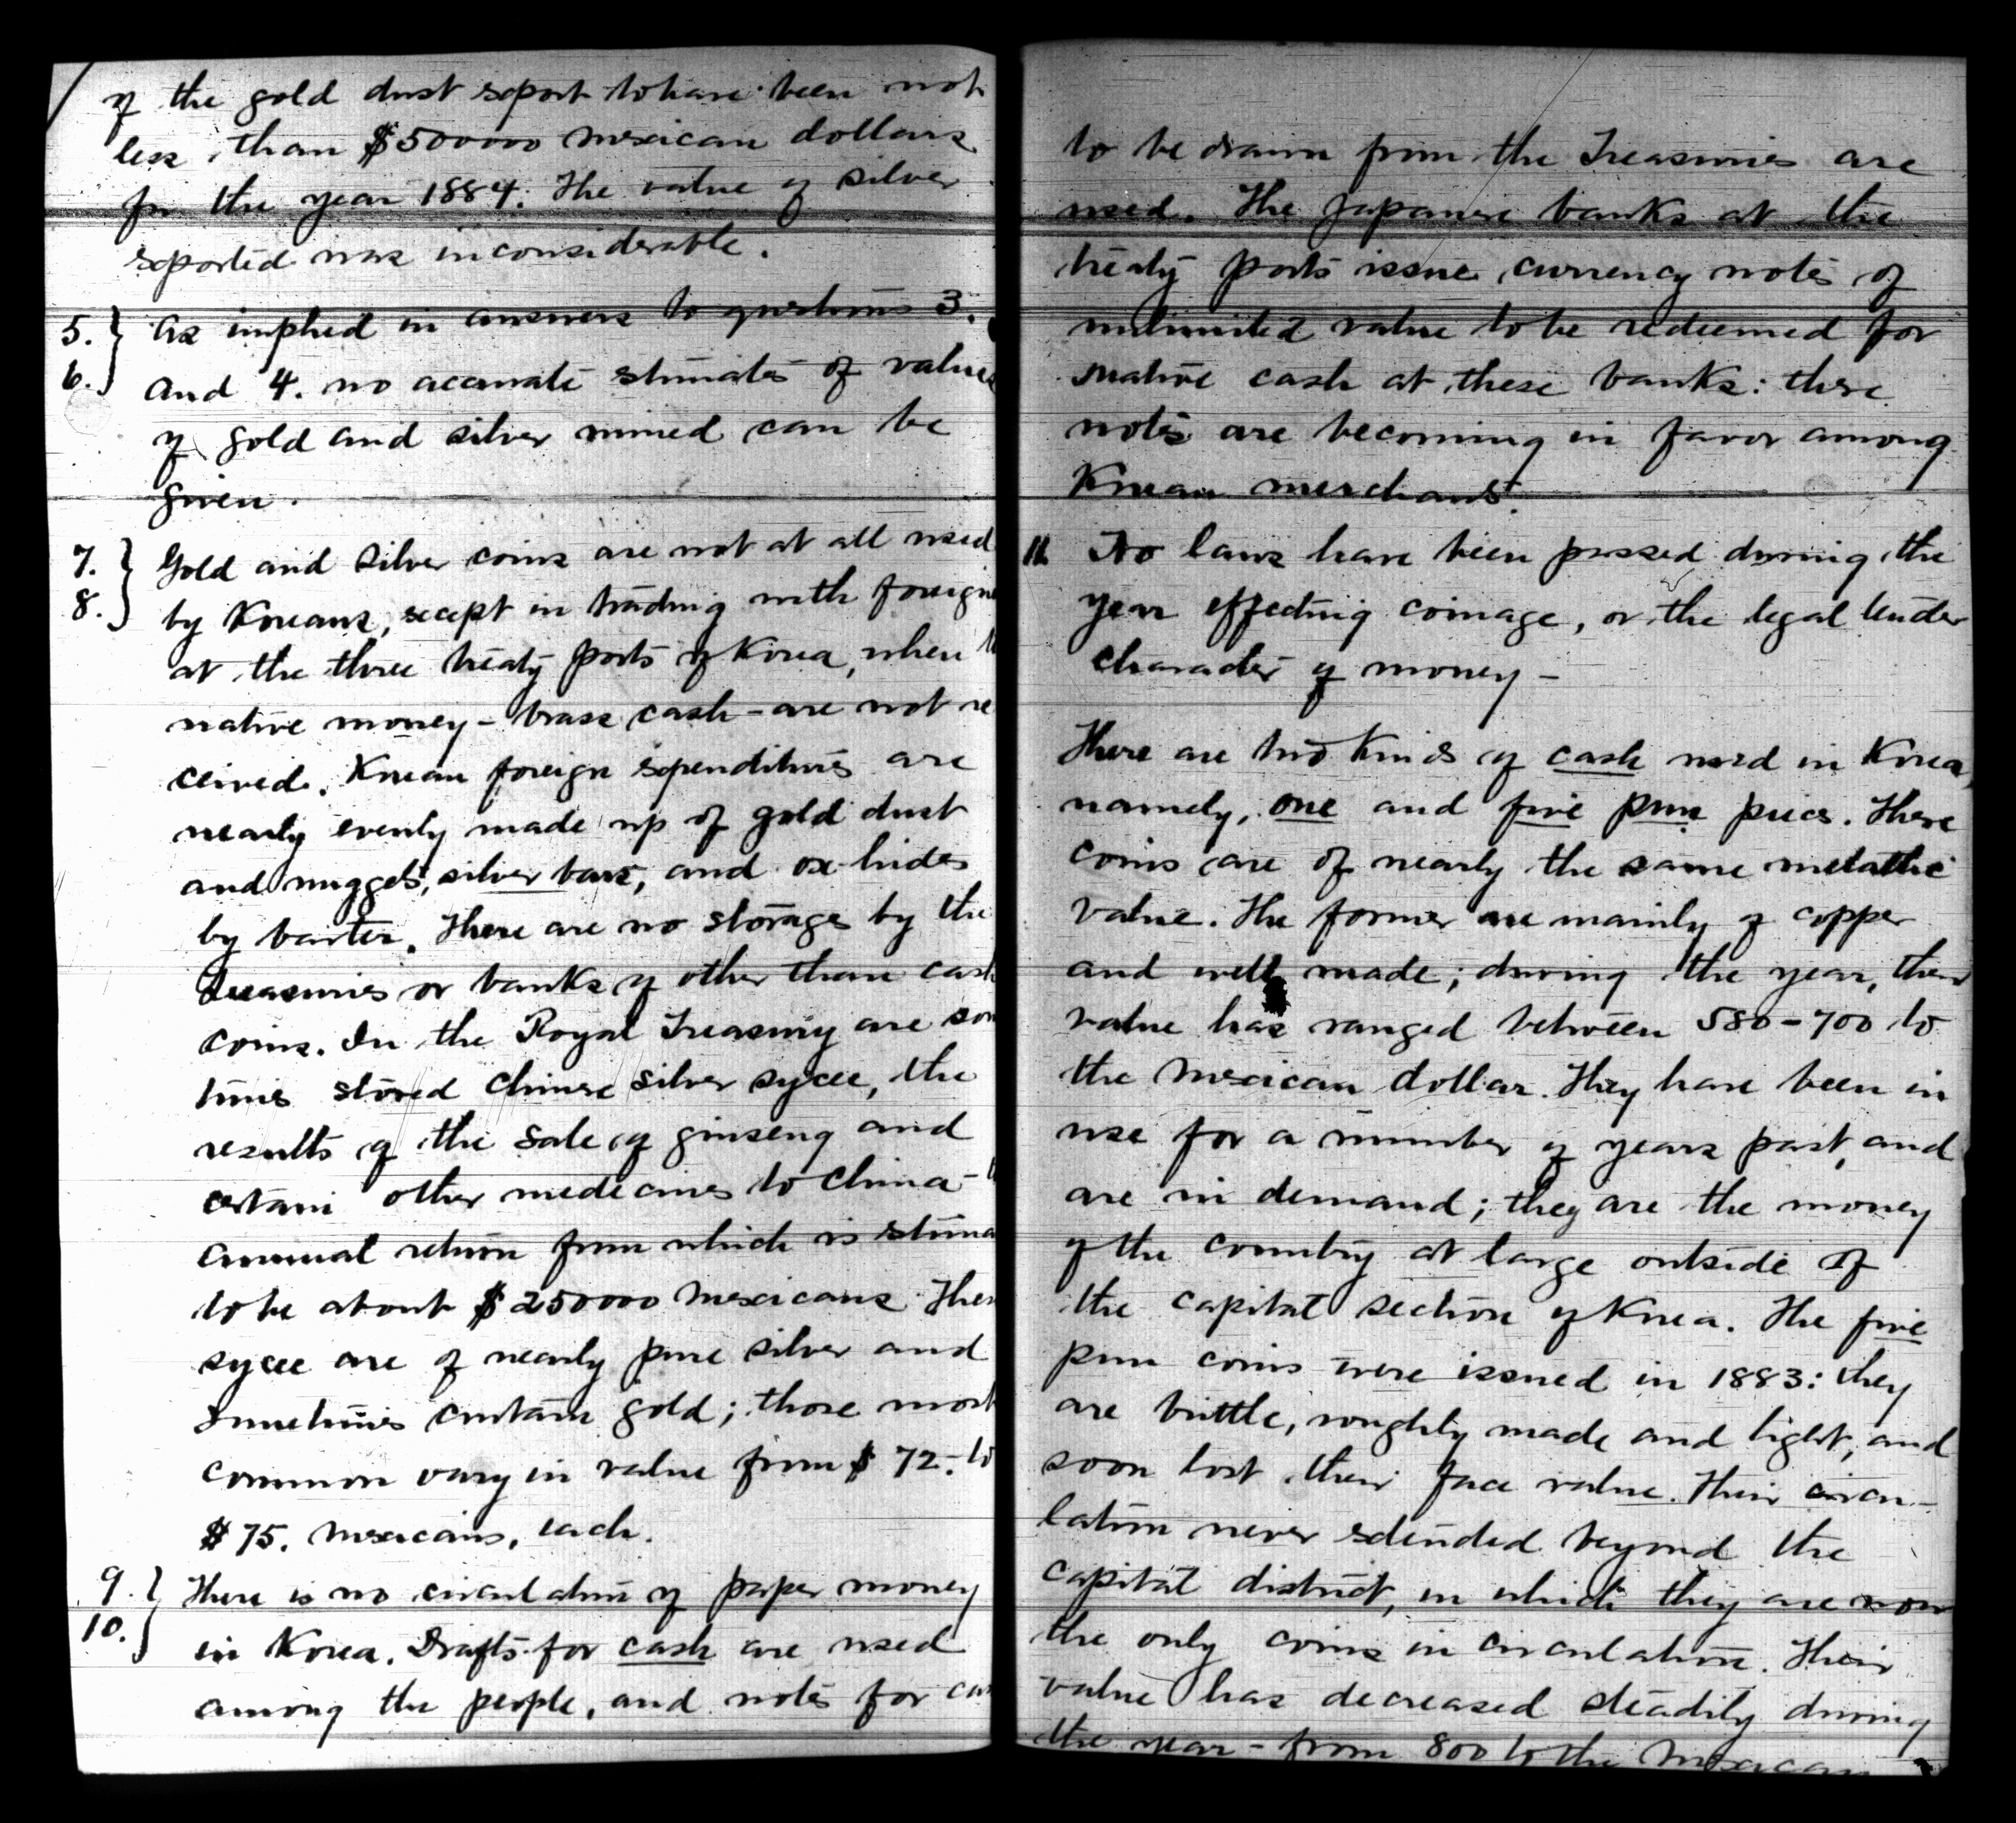 of the gold dust export to have been not
less than $500000 Mexican dollars
for the year 1884. The value of silver
exported was inconsiderable.
5. } As implied in answers to questions 3.
6. } and 4. no accurate estimates of values
of gold and silver mined can be
given.
7. } Gold and silver coins are not at all used
8. } by Koreans, except in trading with foreign
at the three treaty ports of Korea, when
native money - brass cash - are not re
ceived. Korean foreign expenditures are
nearly evenly made up of gold dust
and nuggets, silver bars, and ox-hides
by barter. There are no storages by the
Treasuries or banks of other than cash
coins. In the Royal Treasury are som
times stored Chinese silver sycee, the
results of the sale of ginseng and
certain other medecines to China -
annual return from which is estima
to be about $250000 Mexicans. These
sycee are of nearly pure silver and
sometimes contain gold; those most
common vary in value from $72. to
$75. Mexicans, each.
9. } There is no circulation of paper money
10. } in Korea. Drafts for cash are used
among the people, and notes for
to be drawn from the Treasuries are
used. The Japanese banks at the
treaty ports issue currency notes of
unlimited value to be redeemed for
native cash at these banks: these
notes are becoming in favor among
Korean merchants.
11. No laws have been passed during the
year effecting coinage, or the legal tender
character of money -
There are two kinds of cash used in Korea,
namely, one and five pun pieces. These
coins are of nearly the same metallic
value. The former are mainly of copper
and well made; during the year, their
value has ranged between 580-700 to
the Mexican dollar. They have been in
use for a number of years past, and
are in demand; they are the money
of the country at large outside of
the capital section of Korea. The five
pun coins were issued in 1883: they
are brittle, roughly made and light, and
soon lost their face value. Their circu-
lation never extended beyond the
capital district, in which they are now
the only coins in circulation. Their
value has decreased steadily during
the year - from 800 to the Mexican